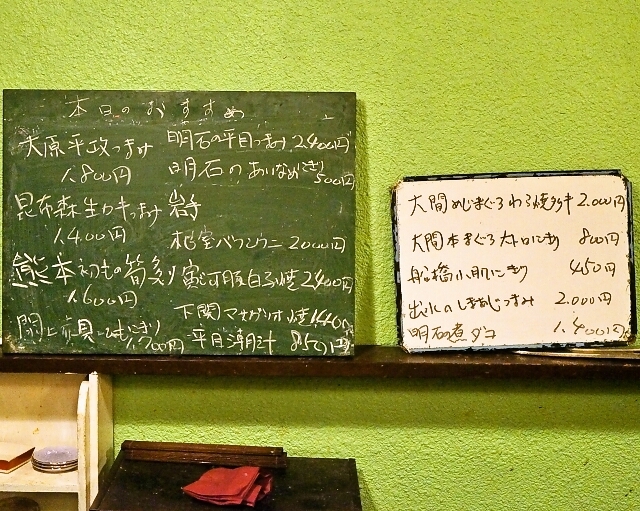 本日のおすすめ
大原平政つまみ
1,800円
昆布森生カキつまみ
1,400円
熊本初もの筍
1,600円
閖上赤貝ひもにぎり
1,700円
明石の平目つまみ 2,400円
明石のあいなめにぎり
500円
岩
根室バフンウニ 2000円
駿河 白 焼 2,400円
下関マナガツオ 焼 1,400
平目潮汁 850円
大間めじまぐろわら焼タタキ 2.000円
大間本まぐろ大トロにぎり 800円
船橋小肌にぎり 450円
出水のしまあじつまみ 2.000円
明石の煮ダコ 1.400円